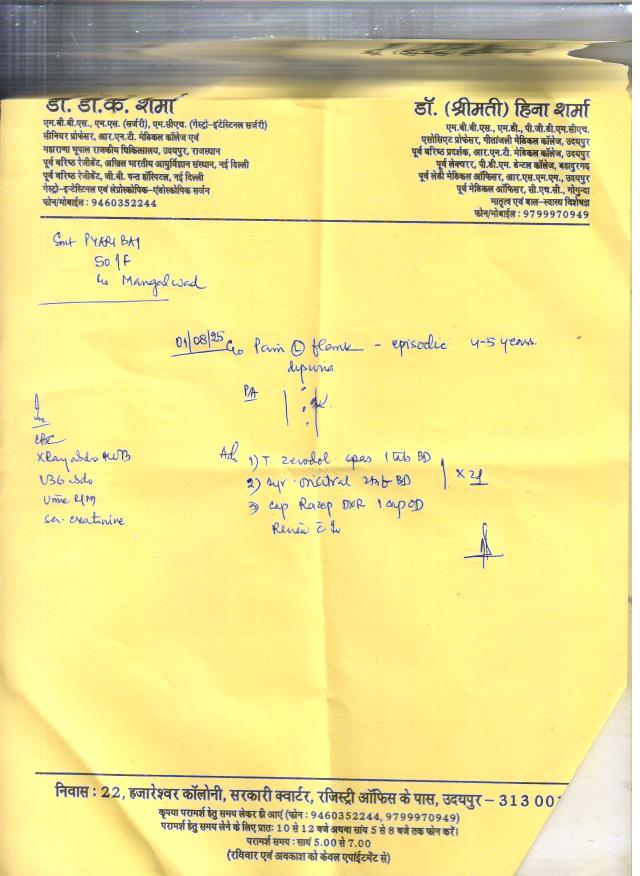 डॉ. डी.के. शर्मा
एम.बी.बी.एस., एम.एस. (सर्जरी), एम.सीएच. (गेस्ट्रो-इंटेस्टिनल सर्जरी)
सीनियर प्रोफेसर, आर.एन.टी. मेडिकल कॉलेज एवं
महाराणा भूपाल राजकीय चिकित्सालय, उदयपुर, राजस्थान
पूर्व वरिष्ठ रेजीडेंट, अखिल भारतीय आयुर्विज्ञान संस्थान, नई दिल्ली
पूर्व वरिष्ठ रेजीडेंट, जी.बी. पन्त हॉस्पिटल, नई दिल्ली
गेस्ट्रो-इन्टेस्टिनल एवं लेप्रोस्कोपिक-एंडोस्कोपिक सर्जन
फोन/मोबाईल : 9460352244
डॉ. (श्रीमती) हिना शर्मा
एम.बी.बी.एस., एम.डी., पी.जी.डी.एम.सीएच.
एसोसिएट प्रोफेसर, गीतांजली मेडिकल कॉलेज, उदयपुर
पूर्व वरिष्ठ प्रदर्शक, आर.एन.टी. मेडिकल कॉलेज, उदयपुर
पूर्व लेक्चरर, पी.डी.एम. डेन्टल कॉलेज, बहादुरगढ़
पूर्व लेडी मेडिकल ऑफिसर, आर.एस.एम.एम., उदयपुर
पूर्व मेडिकल ऑफिसर, सी.एच.सी., गोगुन्दा
मातृत्व एवं बाल-स्वास्थ्य विशेषज्ञ
फोन/मोबाईल : 9799970949
Smt PYARI BAI
50/F
Mangalwad
01/08/25 c/o Pain (L) flank - episodic 4-5 years.
dysuria
PA
Inv
CBC
XRay abdo KUB
USG abdo
Urine R/M
Ser. creatinine
Adv 1) T zerodol spas 1 tab BD
2) Syr. BD
3) cap Razep DXR 1 cap OD
Review c̄ Inv
निवास : 22, हजारेश्वर कॉलोनी, सरकारी क्वार्टर, रजिस्ट्री ऑफिस के पास, उदयपुर – 313 001
कृपया परामर्श हेतु समय लेकर ही आएं (फोन : 9460352244, 9799970949)
परामर्श हेतु समय लेने के लिए प्रातः 10 से 12 बजे अथवा सायं 5 से 8 बजे तक फोन करें।
परामर्श समय : सायं 5.00 से 7.00
(रविवार एवं अवकाश को केवल एपॉइंटमेंट से)